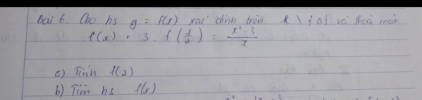 Bài 6. Cho hs y = f(x) xác định trên R \ {0} và thoả mãn
f(x) + 3. f(1/x) = x² - 3 / x
a) Tính f(2)
b) Tìm hs f(x)